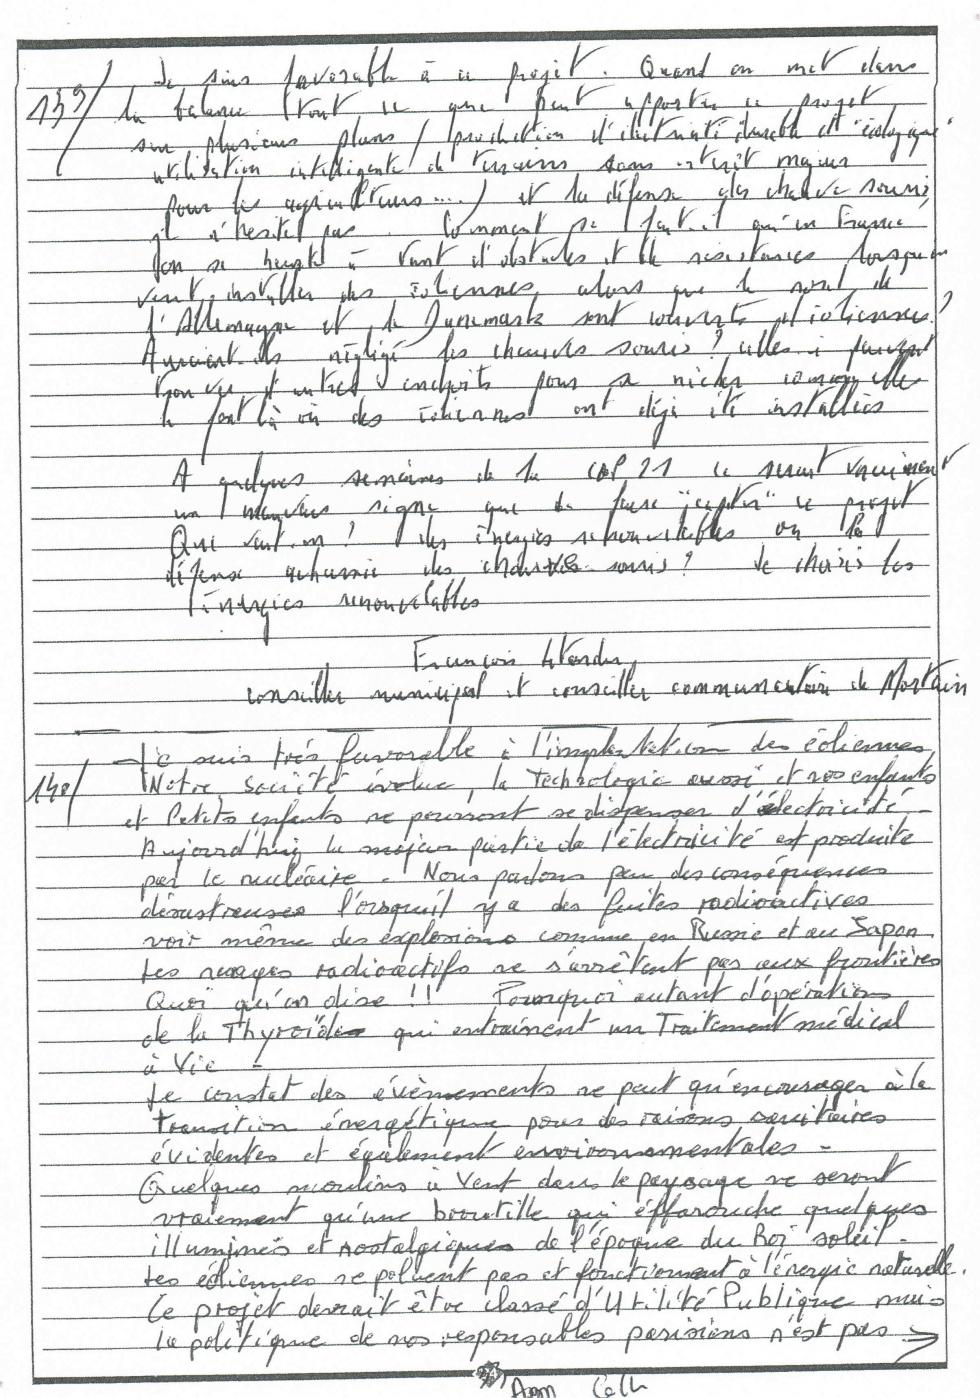 139/ Je suis favorable à ce projet. Quand on met dans
la balance (tout ce que peut apporter ce projet
sur plusieurs plans / production d'électricité durable et "écologique"
utilisation intelligente de terrains sans intérêt majeur
pour les agriculteurs....) et la défense des chauve souris,
je n'hésite pas. Comment se fait-il qu'en France
l'on se heurte à tant d'obstacles et de résistances lorsqu'on
veut installer des éoliennes, alors que le nord de
l'Allemagne et le Danemark sont couverts d'éoliennes?
Auraient-ils négligé les chauves souris? celles-ci peuvent
trouver d'autres endroits pour se nicher comme elles
le font là où des éoliennes ont déjà été installées
A quelques semaines de la COP 21 ce serait vraiment
un mauvais signe que de faire "capoter" ce projet
Que veut-on? des énergies renouvelables ou la
défense acharnée des chauves souris? Je choisis les
énergies renouvelables
François
conseiller municipal et conseiller communautaire de Mortain
140/ Je suis très favorable à l'implantation des éoliennes,
Notre société évolue, la Technologie aussi et nos enfants
et Petits enfants ne pourront se dispenser d'électricité -
Aujourd'hui la majeur partie de l'électricité est produite
par le nucléaire - Nous parlons peu des conséquences
désastreuses l'orsquil y a des fuites radioactives
voir même des explosions comme en Russie et au Japon
Les nuages radioactifs ne s'arrêtent pas aux frontières
Quoi qu'on dise !! Pourquoi autant d'opérations
de la Thyroïde qui entrainent un Traitement médical
à Vie -
Le constat des évènements ne peut qu'encourager à la
transition énergétique pour des raisons sanitaires
évidentes et également environnementales -
Quelques moulins à vent dans le paysage ne seront
vraiement qu'une broutille qui éffarouche quelques
illuminés et nostalgiques de l'époque du Roi soleil -
Les éoliennes ne poluent pas et fonctionnent à l'énergie naturelle.
Ce projet devrait être classé d'Utilité Publique mais
la politique de nos responsables parisiens n'est pas →